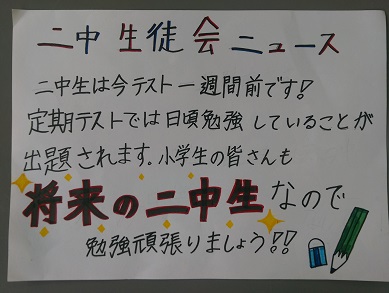 二中 生徒 会 ニュース
二中生は今テスト一週間前です!
定期テストでは日頃勉強していることが
出題されます。小学生の皆さんも
将来の二中生なので
勉強頑張りましょう!!